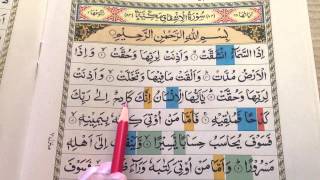 سُوْرَةُ الْاِنْشِقَاقِ مَكِّيَّةٌ
بِسْمِ اللّٰهِ الرَّحْمٰنِ الرَّحِيْمِ
اِذَا السَّمَآءُ انْشَقَّتْ وَاَذِنَتْ لِرَبِّهَا وَحُقَّتْ وَاِذَا
الْاَرْضُ مُدَّتْ وَاَلْقَتْ مَا فِيْهَا وَتَخَلَّتْ وَاَذِنَتْ
لِرَبِّهَا وَحُقَّتْ يٰٓاَيُّهَا الْاِنْسَانُ اِنَّكَ كَادِحٌ اِلٰى رَبِّكَ
كَدْحًا فَمُلٰقِيْهِ فَاَمَّا مَنْ اُوْتِيَ كِتٰبَهٗ بِيَمِيْنِهٖ
فَسَوْفَ يُحَاسَبُ حِسَابًا يَّسِيْرًا وَّيَنْقَلِبُ اِلٰٓى اَهْلِهٖ
مَسْرُوْرًا وَاَمَّا مَنْ اُوْتِيَ كِتٰبَهٗ وَرَآءَ فَسَوْفَ